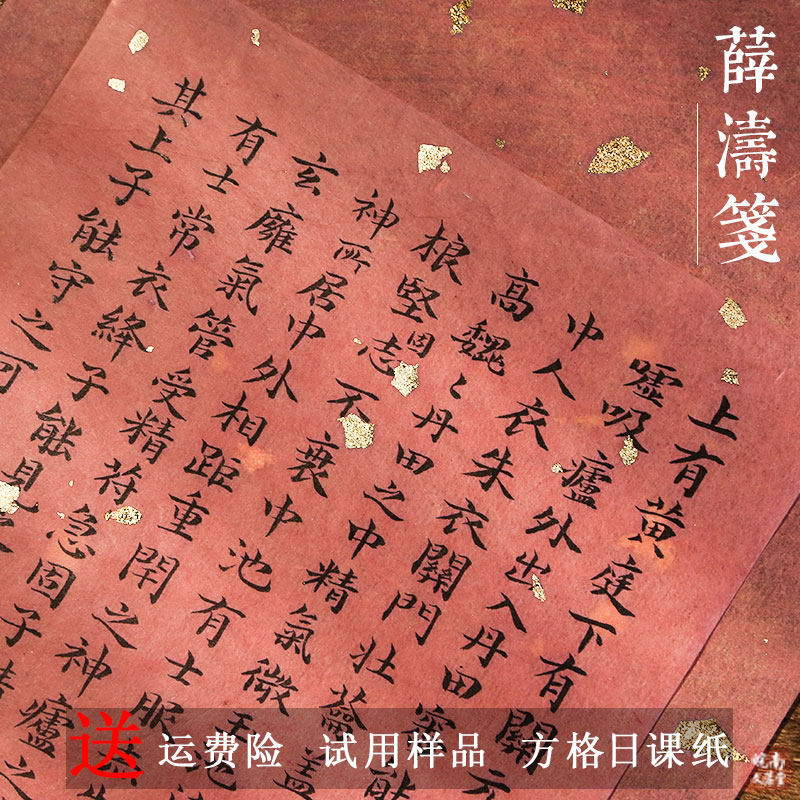 薛濤箋
上有黃庭下有關
噓吸廬外出入丹田審能
中人衣朱衣關門壯籥蓋
高魏々丹田之中精氣微玉
根堅固志不衰中池有士服
神所居中外相距重閇之神廬之
玄廱氣管受精苻急固子精
有士常衣絳子能見
其上子能守之可
送 运费险 试用样品 方格日课纸